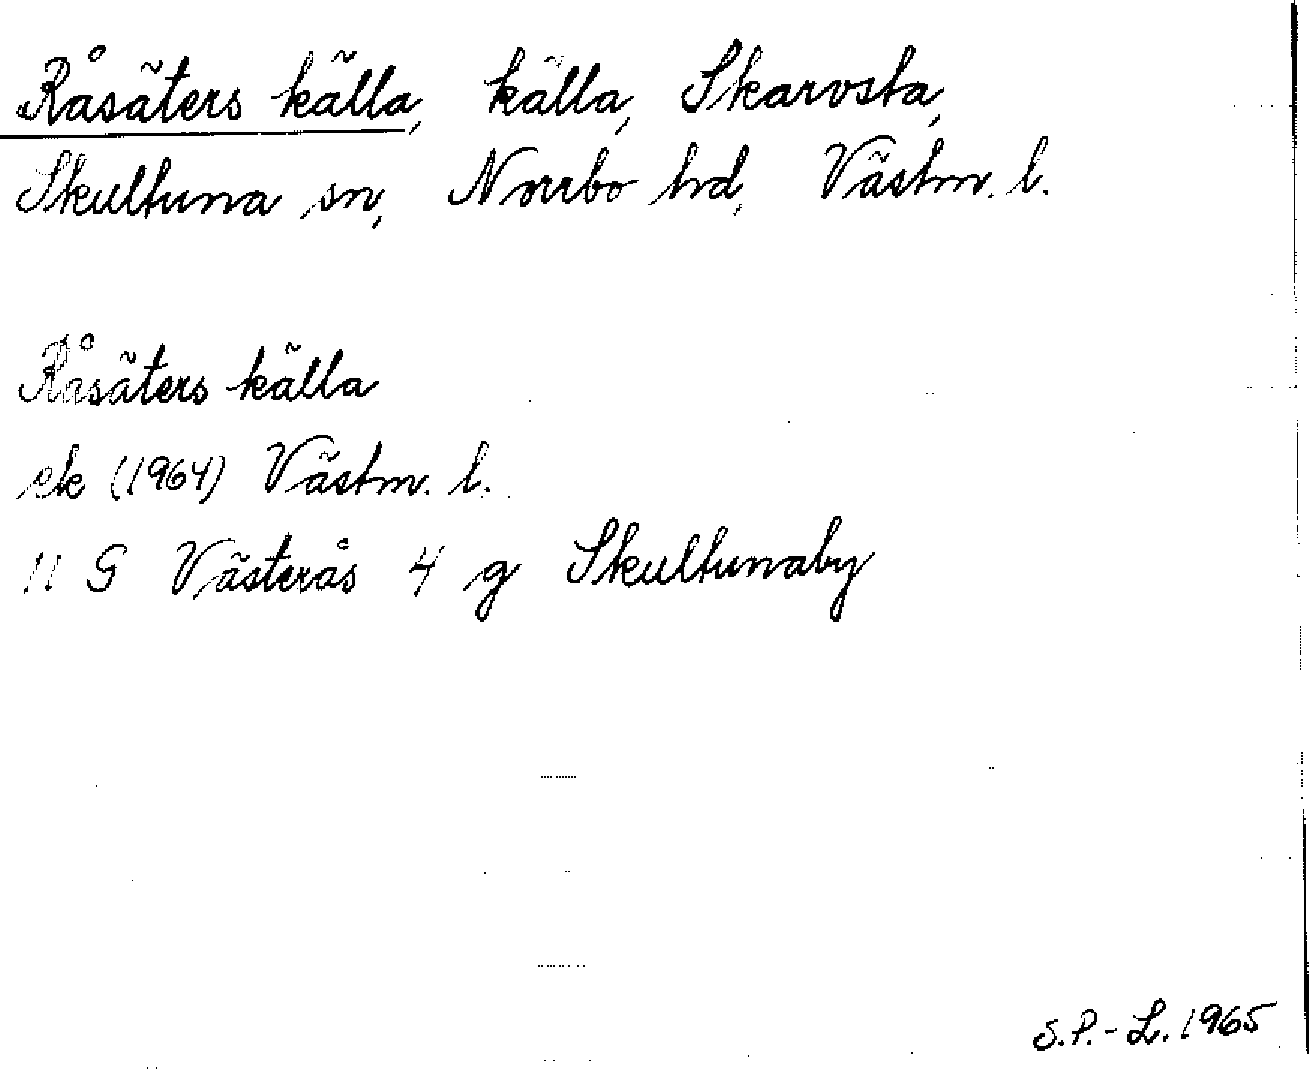 Råsäters källa, källa, Skarvsta,
Skultuna sn, Norrbo hd, Västm. l.
Råsäters källa
ek (1964) Västm. l.
11 G Västerås 4 g Skultunaby
S.P.-L. 1965